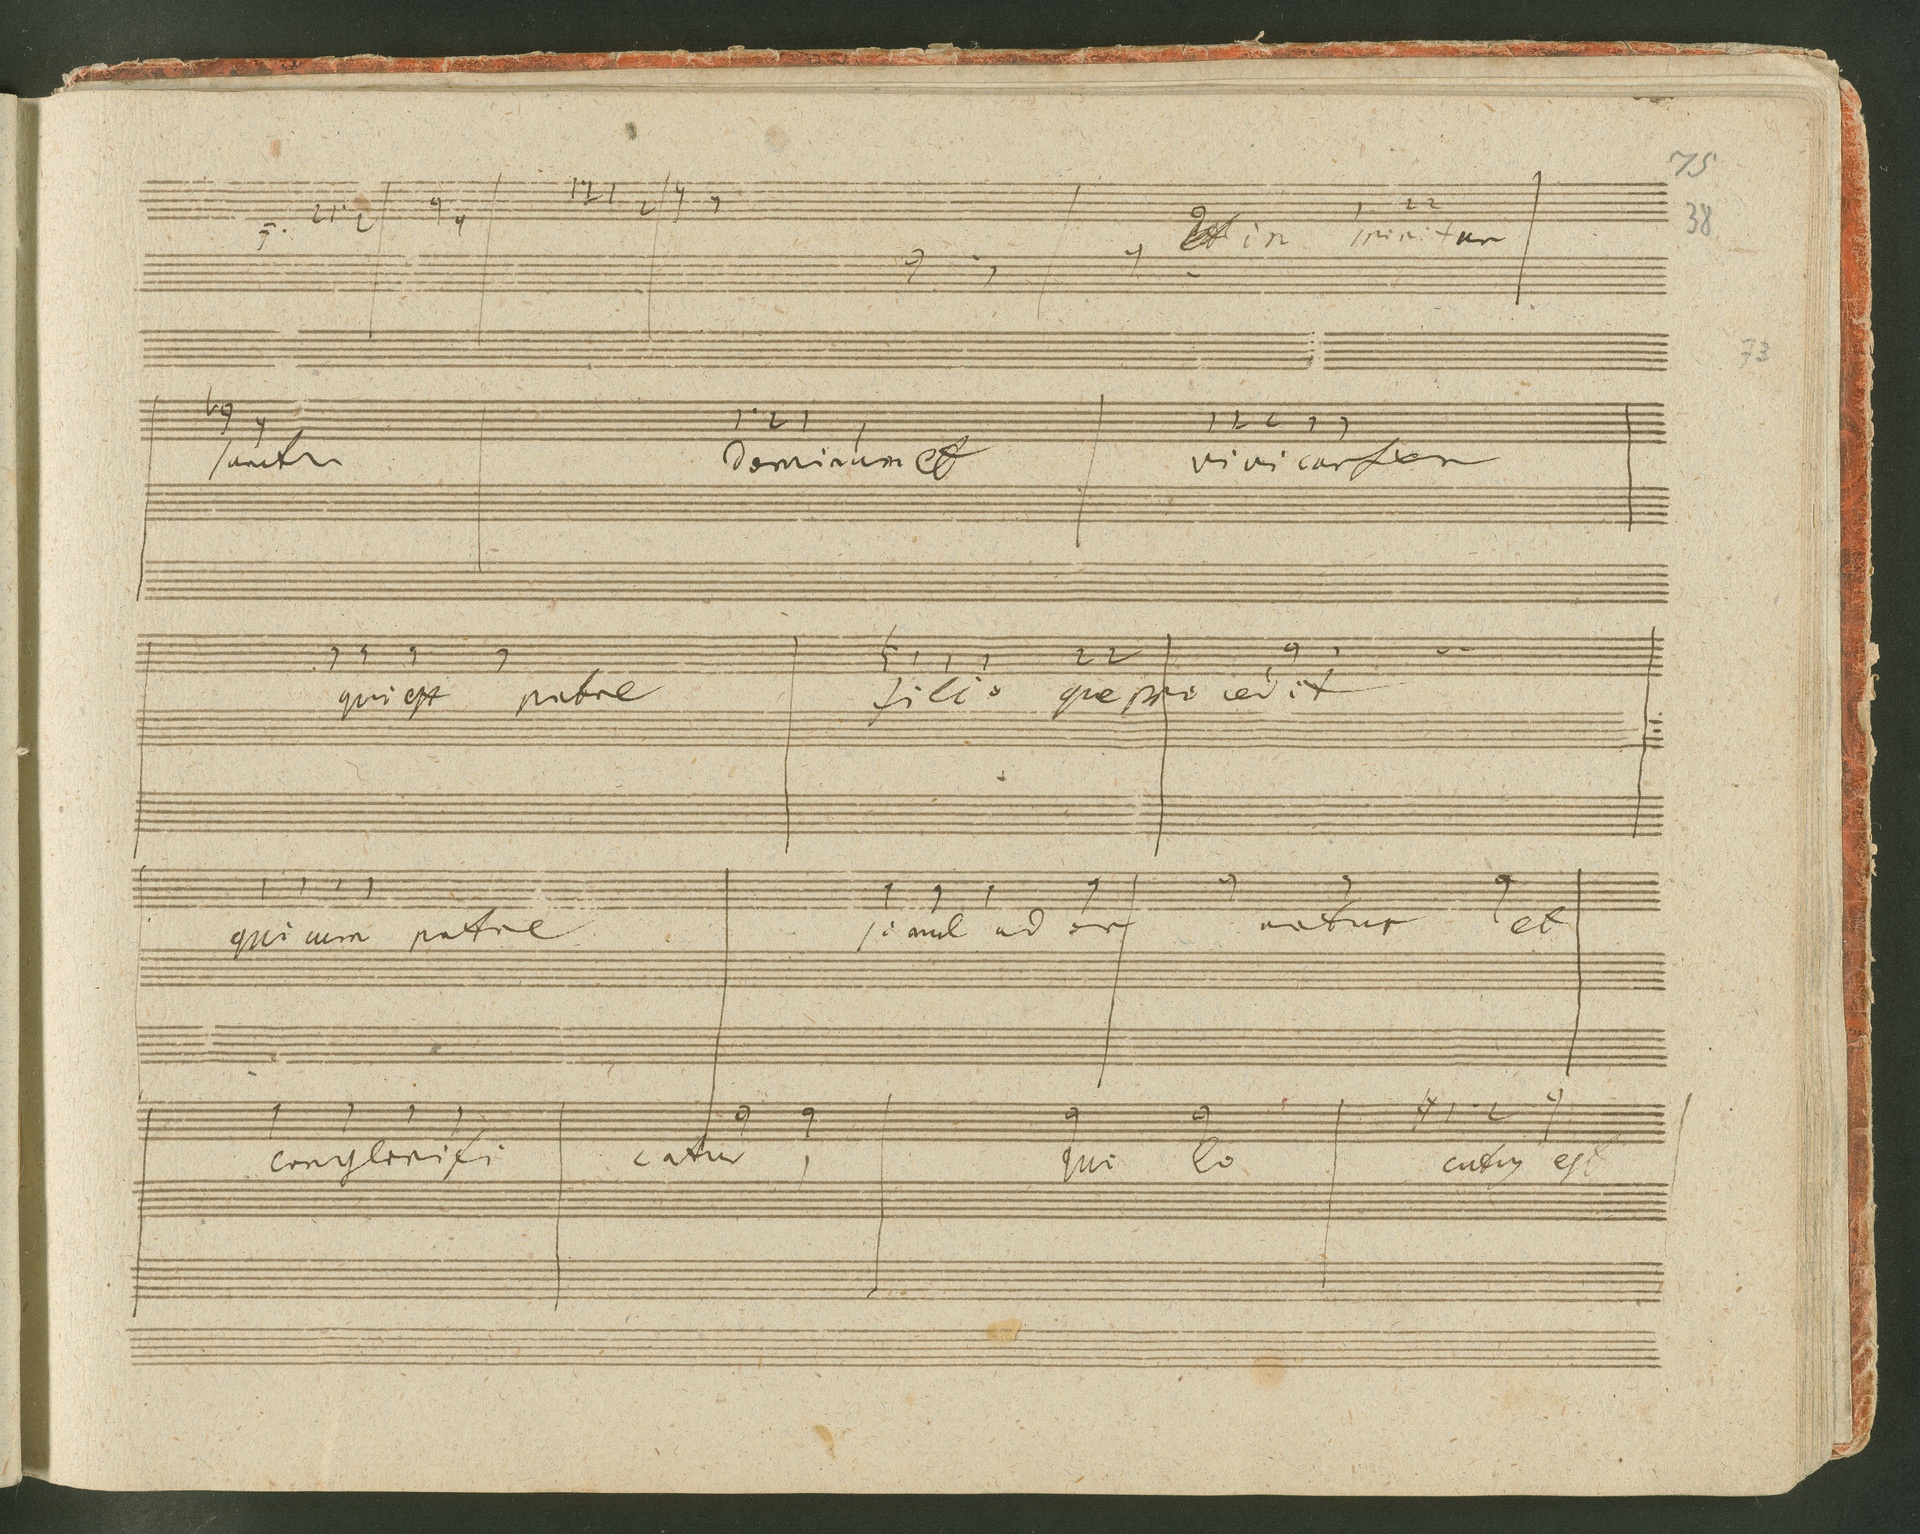 75
38
Et in spiritum
73
sanctum Dominum et vivicantem
qui ex patre filio que pro cedit
qui cum patre simul ad or atur et
conglorifi catur, qui lo cutus est